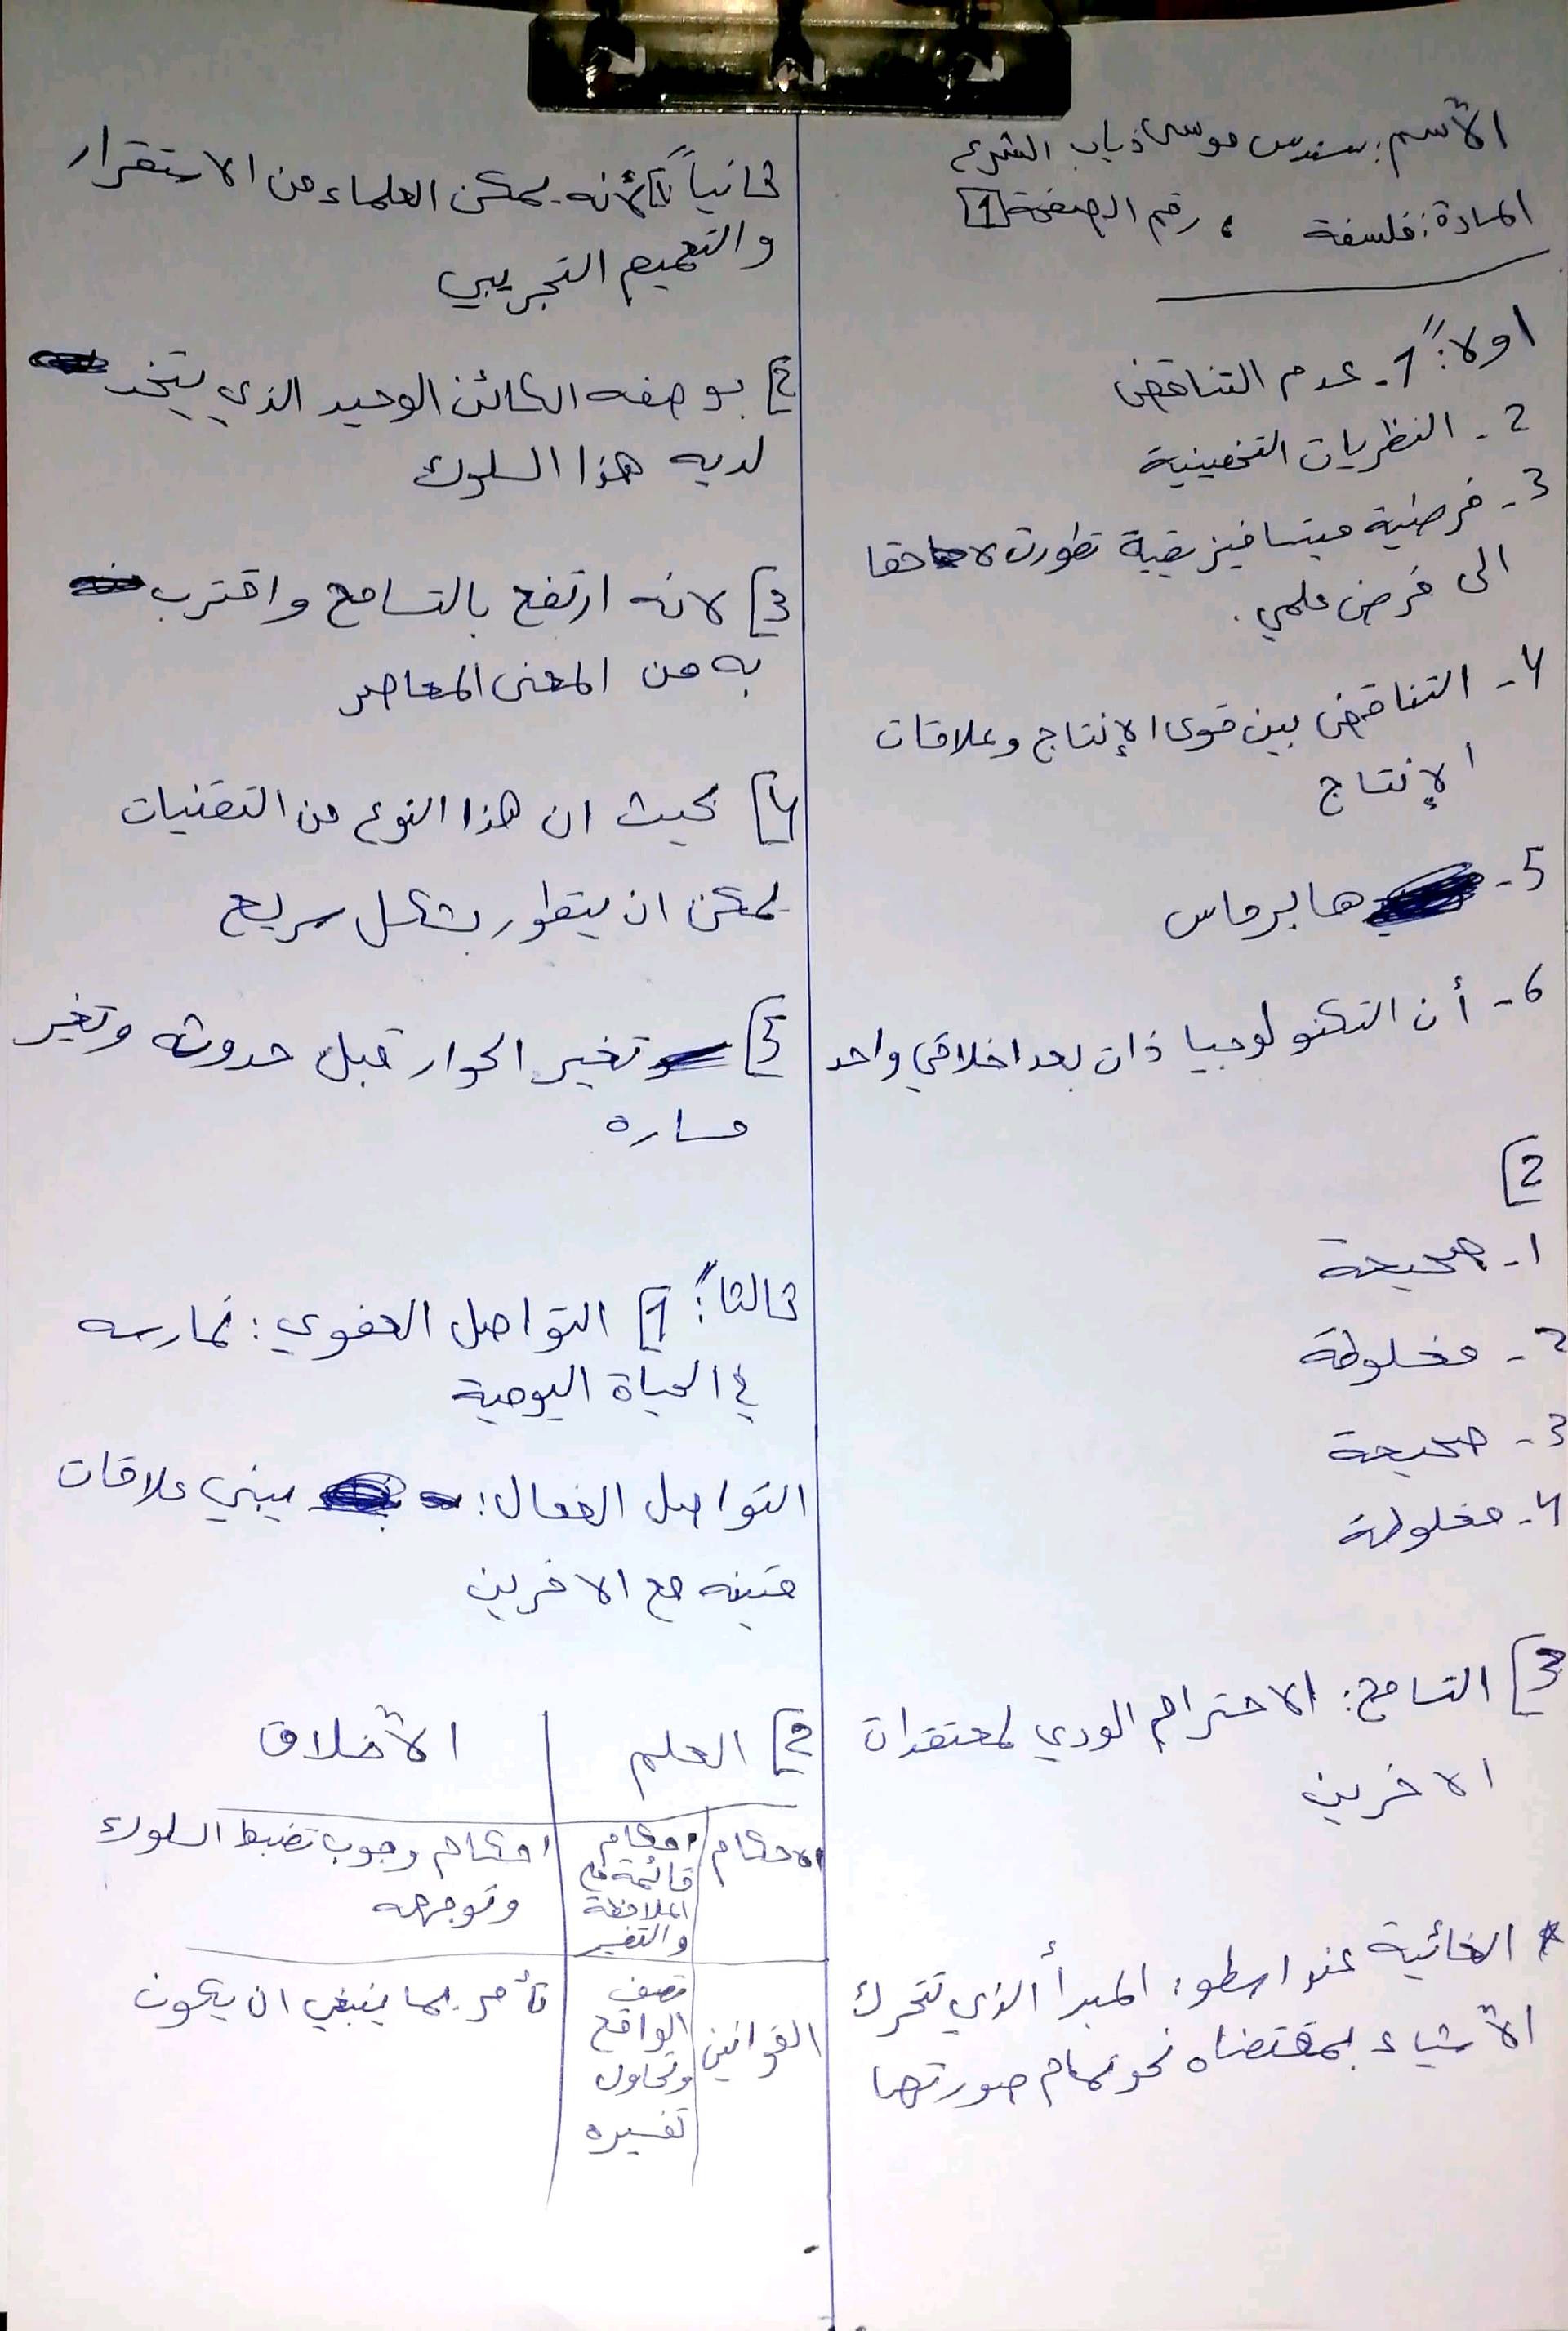 الأسم: سندس موسى ذياب الشرع
المادة: فلسفة ، رقم الصفحة [1]
اولا":ً 1- عدم التناقض
2- النظريات التخمينية
3- فرضية ميتافيزيقية تطورت لاحقا
الى فرض علمي.
4- التناقض بين قوى الإنتاج وعلاقات
الإنتاج
5- هابرماس
6- أن التكنولوجيا ذات بعد اخلاقي واحد
2]
1- صحيحة
2- مغلوطة
3- صحيحة
4- مغلوطة
3] التسامح: الاحترام الودي لمعتقدات
الاخرين
* الغائية عند ارسطو: المبدأ الذي تتحرك
الأشياء بمقتضاه نحو تمام صورتها
ثانياً 1] لأنه يمكن العلماء من الاستقرار
والتعميم التجريبي
2] بوصفه الكائن الوحيد الذي يتخذ
لديه هذا السلوك
3] لانه ارتفع بالتسامح واقترب
به من المعنى المعاصر
4] بحيث ان هذا النوع من التقنيات
يمكن ان يتطور بشكل سريع
5] تغير الحوار قبل حدوثه وتغير
مساره
ثالثاً: 1] التواصل العفوي: نمارسه
في الحياة اليومية
التواصل الفعال: يبني علاقات
متينه مع الاخرين
2] العلم | الأخلاق
الاحكام | احكام | احكام وجوب تضبط السلوك
قائمة على | وتوجهه
الملاحظة
والتفسير
القوانين | تصف | تأمر بما ينبغي ان يكون
الواقع
وتحاول
تفسيره